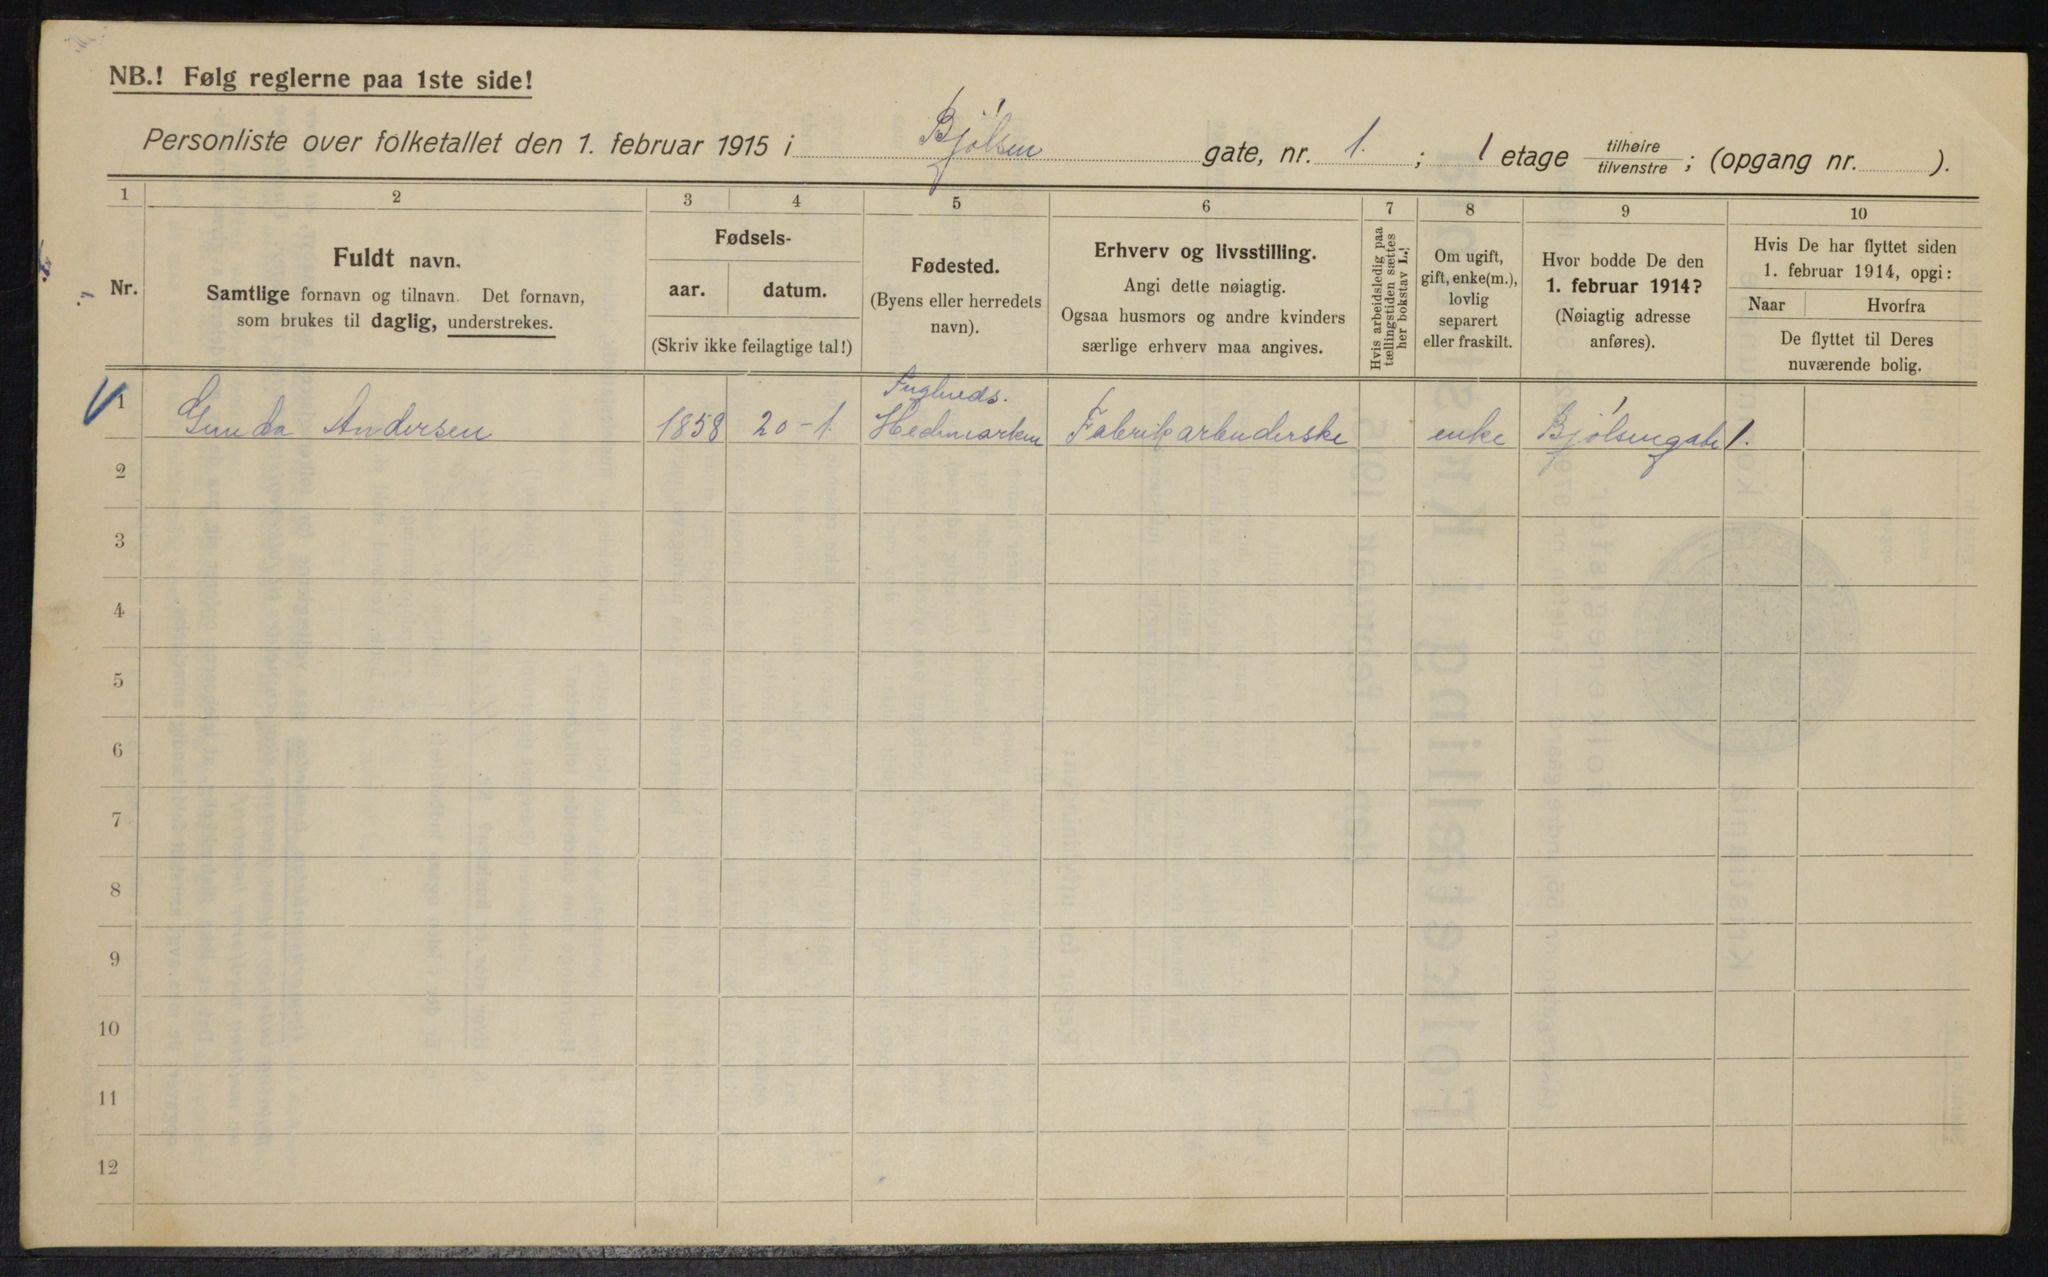 NB.! Følg reglerne paa 1ste side!
Personliste over folketallet den 1. februar 1915 i Bjølsen gate, nr. 1. ; 1 etage tilhøire/tilvenstre ; (opgang nr. ).
1 2 3 4 5 6 7 8 9 10
Nr.
Fuldt navn.
Samtlige fornavn og tilnavn. Det fornavn,
som brukes til daglig, understrekes.
Fødsels-
aar. datum.
(Skriv ikke feilagtige tal!)
Fødested.
(Byens eller herredets
navn).
Erhverv og livsstilling.
Angi dette nøiagtig.
Ogsaa husmors og andre kvinders
særlige erhverv maa angives.
Hvis arbeidsledig paa
tællingstiden sættes
her bokstav L.!
Om ugift,
gift, enke(m.),
lovlig
separert
eller fraskilt.
Hvor bodde De den
1. februar 1914?
(Nøiagtig adresse
anføres).
Hvis De har flyttet siden
1. februar 1914, opgi:
Naar Hvorfra
De flyttet til Deres
nuværende bolig.
1 Gunda Andersen 1858 20-1. Hedemarken Fabrikarbeiderske enke Bjølsengate 1.
2
3
4
5
6
7
8
9
10
11
12